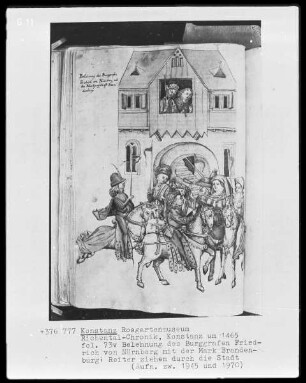 Belehnung des Burggrafen
+376 777 Konstanz Rosgartenmuseum
Richental-Chronik, Konstanz um 1465
fol. 73v Belehnung des Burggrafen Fried-
rich von Nürnberg mit der Mark Branden-
burg: Reiter ziehen durch die Stadt
(Aufn. zw. 1945 und 1970)